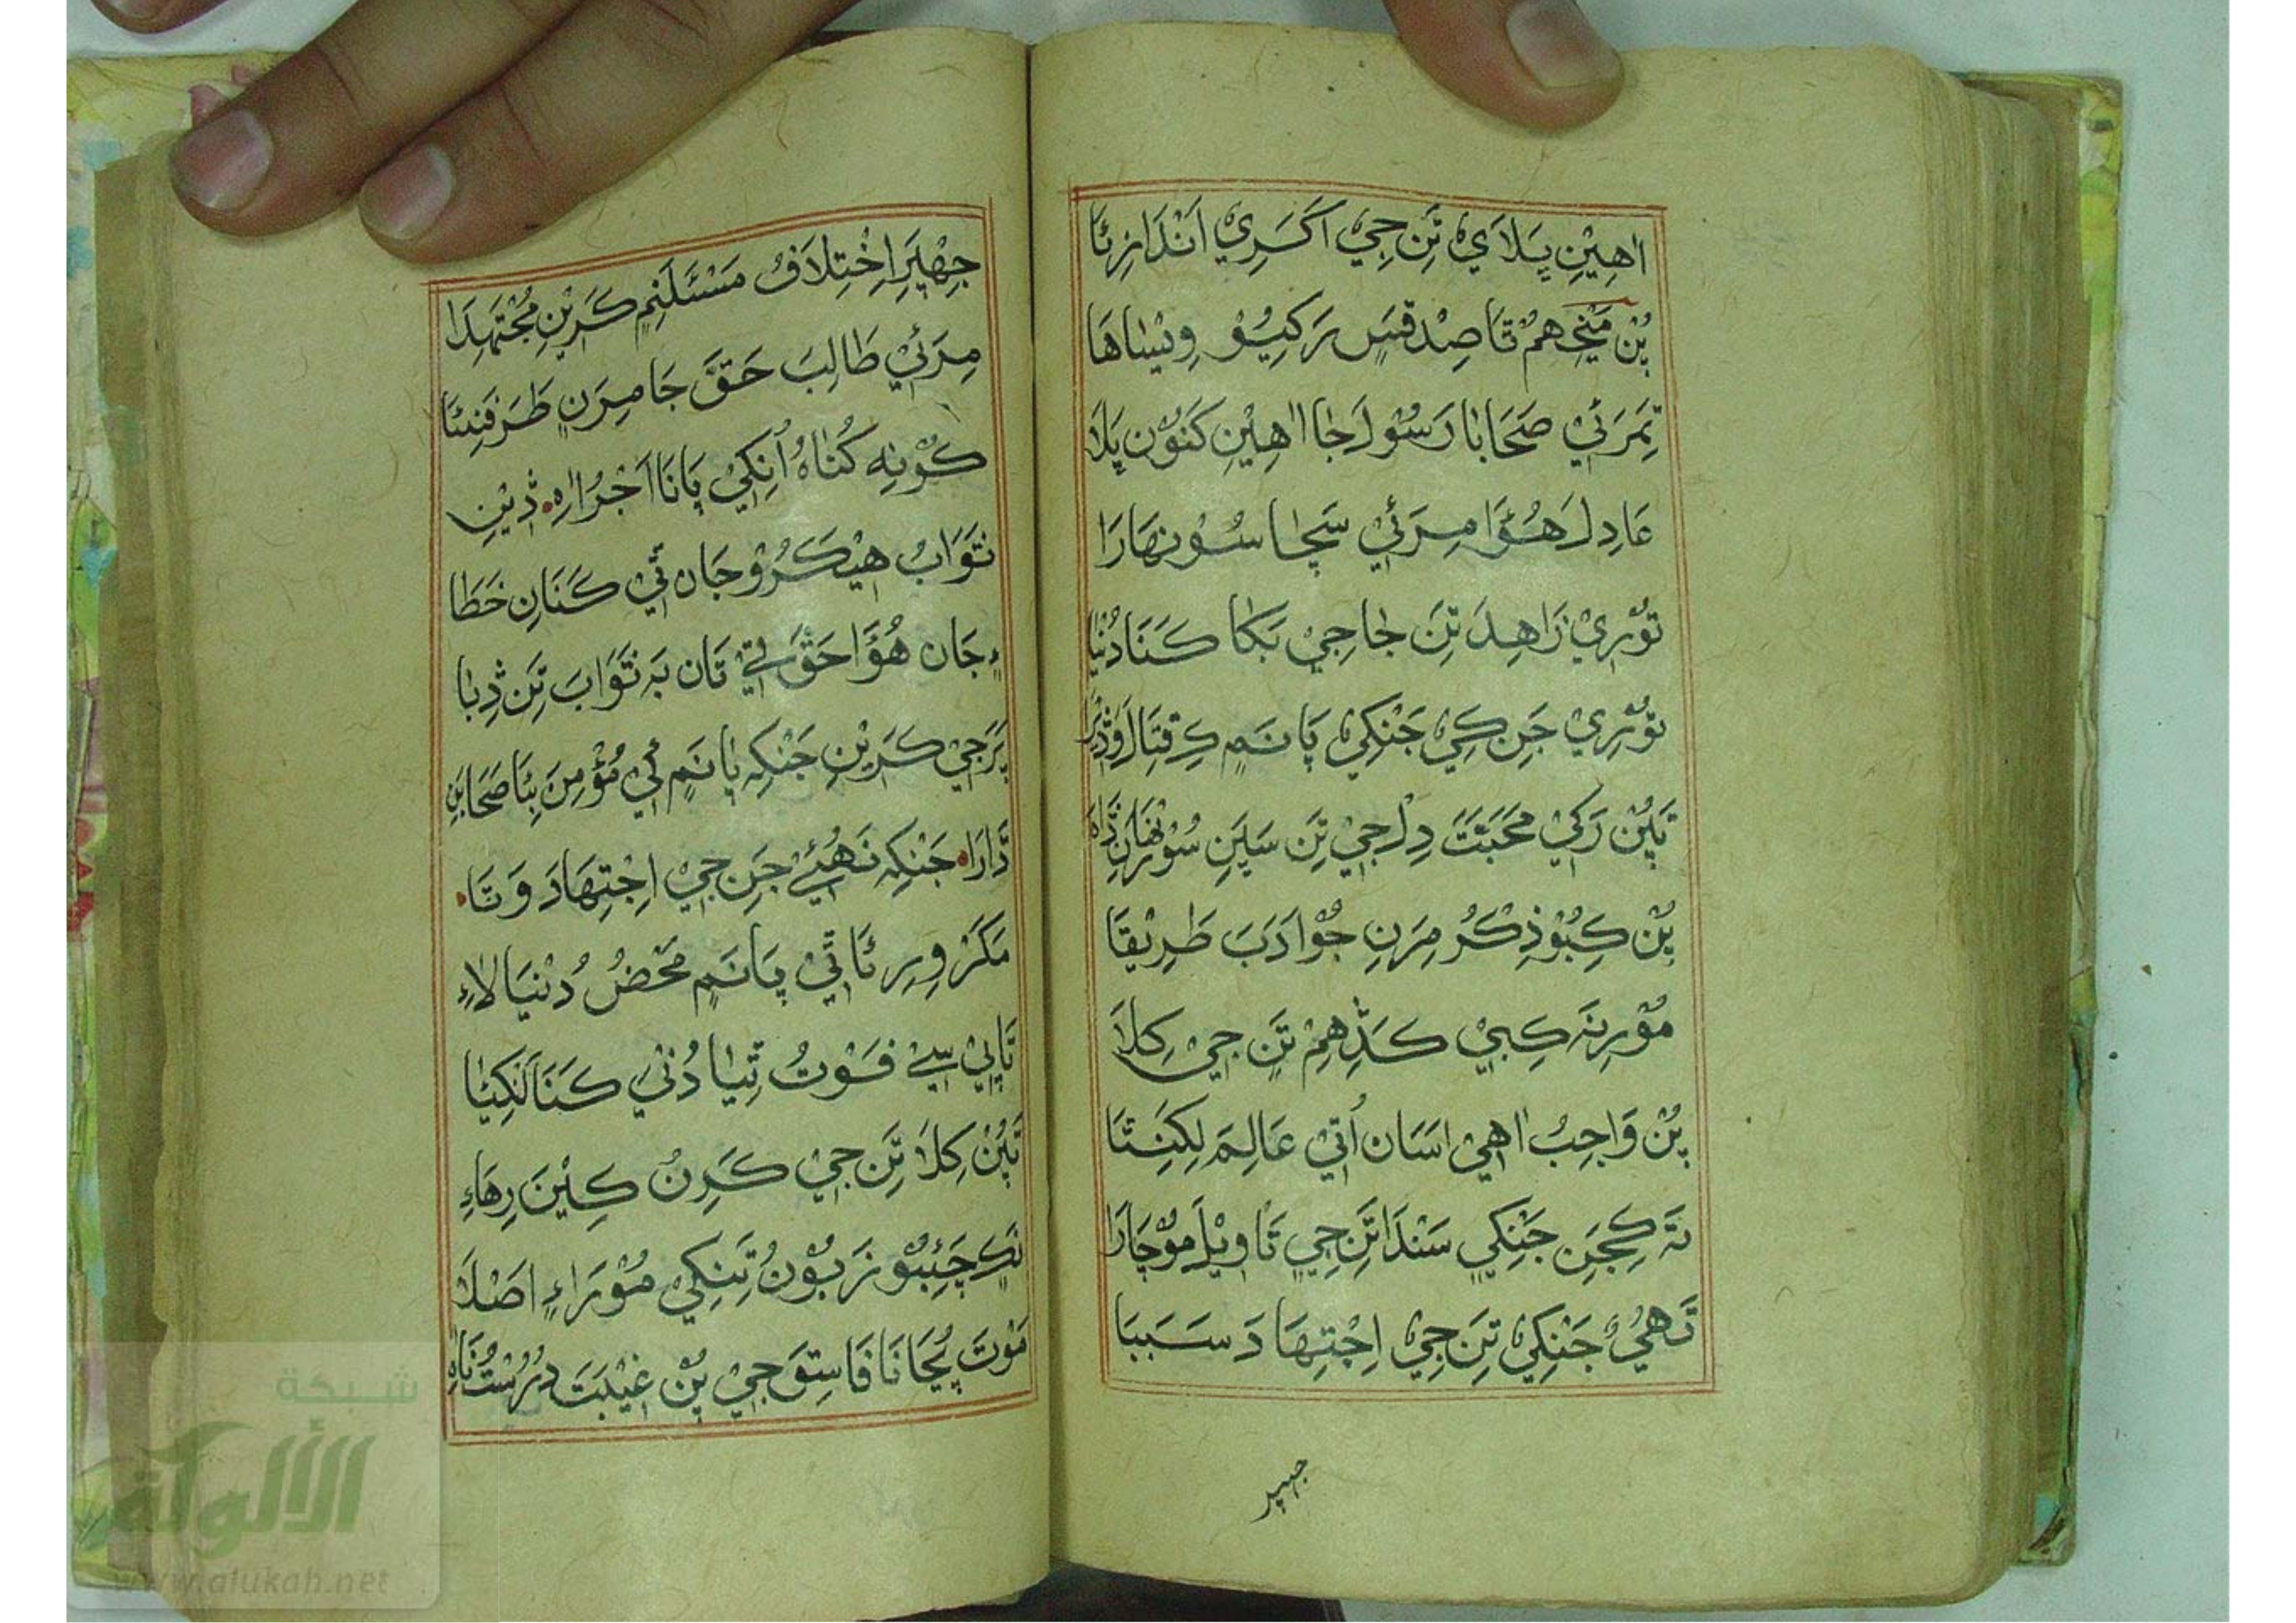 اٰهِيْنِ ڀَلَايٰ تَنِ جِيْ اَكَرِيْ اَنْدَازِئَا
پُنِ مَڃِجِ هِمُ تَا صِدْقِسِ رَكِيُوْ وِيْسَاهَا
تِمَرَئِيْ صَحَابَا رَسُوْلَ جَا اٰهِيْنِ كَنُوْنِ ڀَلَا
عَادِلَ هُئَوَا مِرَئِيْ سَچَا سُوْنهَارَا
تُوْرِيْ زَاهِدَ تَنِ جَا جِيْ بَكَا كَنَا دُنْيَا
تُوْرِيْ جَنِ كِيْ جَنْكِيْ پَانَمِ كِ قِتَالَ
تَپُنِ رَكِيْ مَحَبَّتَ دِلِ جِيْ تَنِ سَڀَنِ
پُنِ كِبُوْ ذِكْرُ مِرَنِ جُوْ اَدَبَ طَرِيْقَا
مُوْرِنَه كِبِيْ كَڎِهِمْ تَنِ جِيْ كِلَا
پُنِ وَاجِبُ اٰهِيْ اَسَانِ اُتِيْ عَالِمَ لِكِنِتَا
تَه كِجَنِ جَنْكِيْ سَنْدَا تَنِ جِيْ تَاوِيْلَ مُوْچَارَا
تَهِيُ جَنْكِيْ تَنِ جِيْ اِجْتِهَادَ سَبَبَا
جهيڙ
جِهْڀَرِ اِخْتِلَافُ مَسْئَلَنِمِ كَرِيْنِ مُجْتَهِدَا
مِرَئِيْ طَالِبَ حَقَّ جَا مِرَنِ طَرَفَنِئَا
كُوْنِه كُنَاهُ اُنِكِيْ پَانَا اَجْرُ اٰهِ ڎِيْنِ
ثَوَابُ هِيْكَرُوْ جَانِ ٿِيْ كَنَانِ خَطَا
ءِ جَانِ هُئَوَا حَقَّ تِيْ تَانِ بَه ثَوَابَ تَنِ ڎِبَا
پَرَ جِيْ كَرِيْنِ جَنْكِه پَانَمِ كِيْ مُؤْمِنَ بِئَا صَحَابَنِ
ڎَّارَا جَنْكِه نَهُئِيْ جَنِ جِيْ اِجْتِهَادَ وَتَا
مَكَرْ وِرِئَا ٿِيْ پَانَمِ مَحْضُ دُنْيَا لَاءِ
تَاپِيْ سِيْ فَوْتُ ٿِيَا دُنِيْ كَنَا لَنْكِيَا
تَپُنِ كِلَا تَنِ جِيْ كَرِنُ كِيْنَ رِهَاءِ
نَكِ چَئِبُوْ زَبُوْنُ تَنِكِيْ مُوْرَاءِ اَصْلَا
مَوْتَ پُڄَانَا فَاسِقَ جِيْ پُنِ غِيْبَتَ دُرُسْتُ نَاهِ
شبكة
الألوكة
www.alukah.net